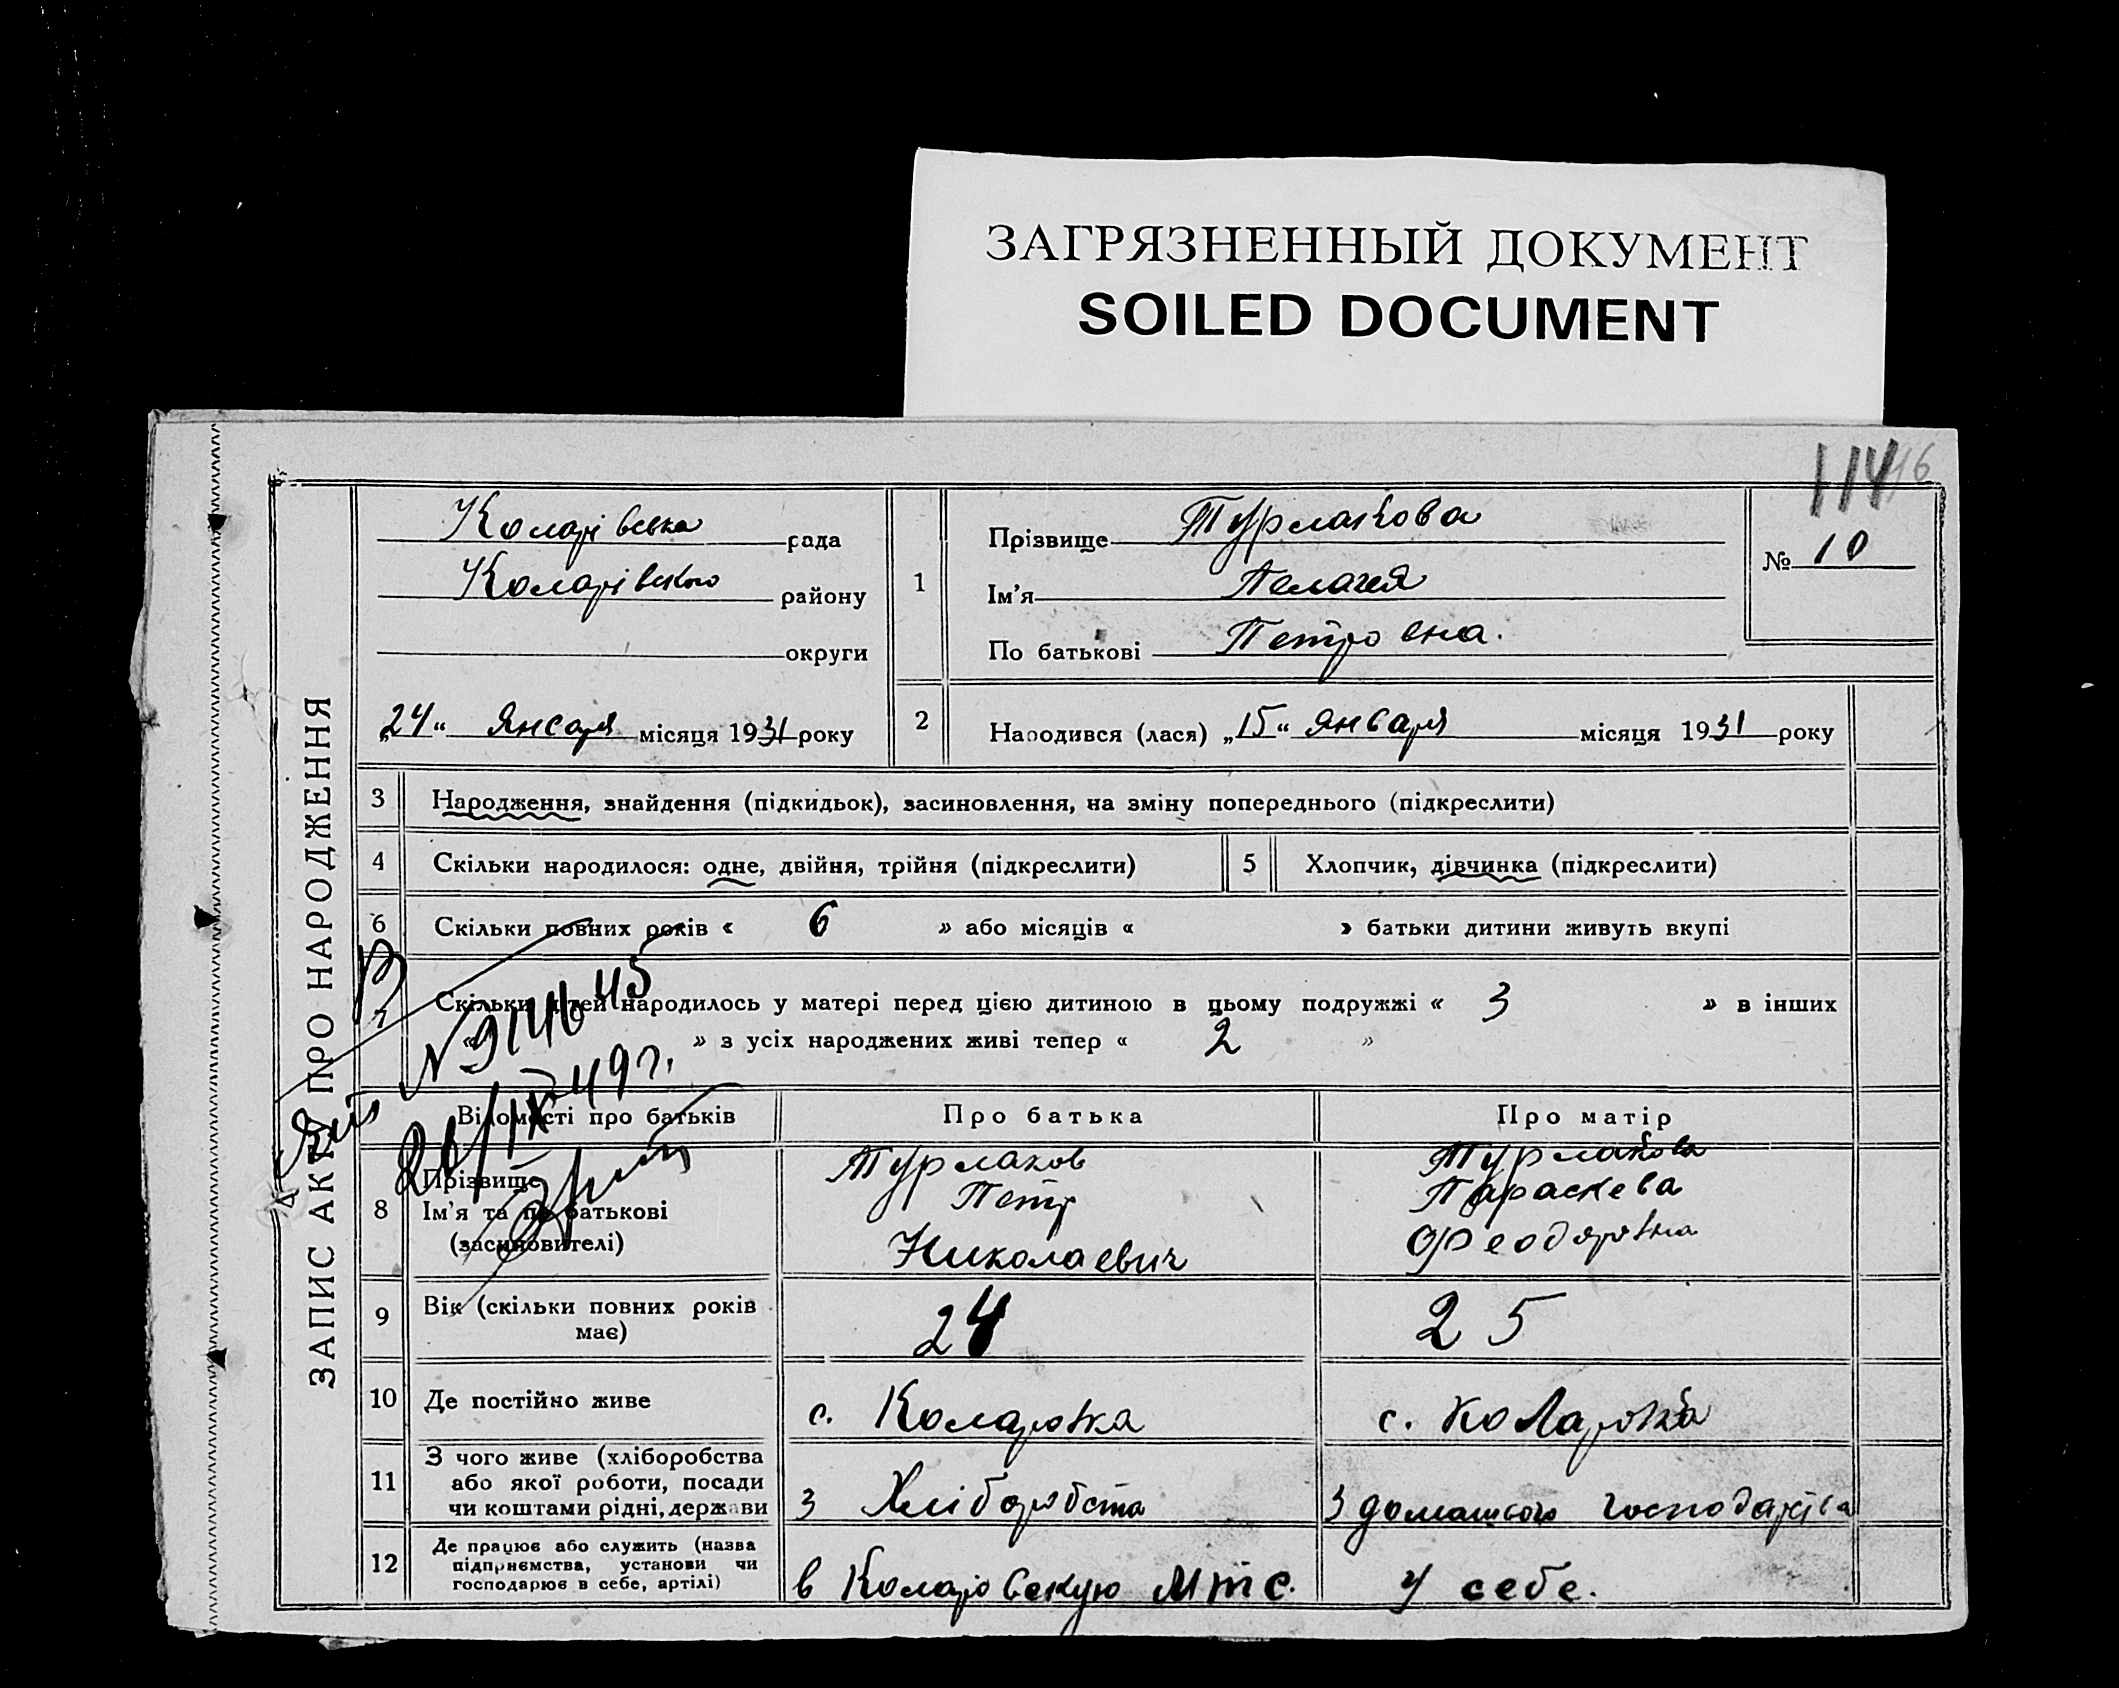 ЗАГРЯЗНЕННЫЙ ДОКУМЕНТ
SOILED DOCUMENT
114
ЗАПИС АКТУ ПРО НАРОДЖЕННЯ
Коларівська рада
Коларівського району
округи
„24“ Января місяця 1931 року
1
Прізвище Турлакова
Ім'я Пелагея
По батькові Петровна.
№ 10
2
Народився (лася) „15“ января місяця 1931 року
3 Народження, знайдення (підкидьок), засиновлення, на зміну попереднього (підкреслити)
4 Скільки народилося: одне, двійня, трійня (підкреслити)
5 Хлопчик, дівчинка (підкреслити)
6 Скільки повних років « 6 » або місяців « » батьки дитини живуть вкупі
7 Скільки дітей народилось у матері перед цією дитиною в цьому подружжі « 3 » в інших
« » з усіх народжених живі тепер « 2 »
Відомості про батьків
Про батька
Про матір
8 Прізвище
Ім'я та по батькові
(засиновителі)
Турлаков
Петр
Николаевич
Турлакова
Параскева
Феодоровна
9 Вік (скільки повних років
має)
24
25
10 Де постійно живе
с. Коларовка
с. Коларовка
11 З чого живе (хліборобства
або якої роботи, посади
чи коштами рідні, держави
З Хліборобста
З домашнього господарства
12 Де працює або служить (назва
підприємства, установи чи
господарює в себе, артілі)
в Коларовскую МТС.
У себе.